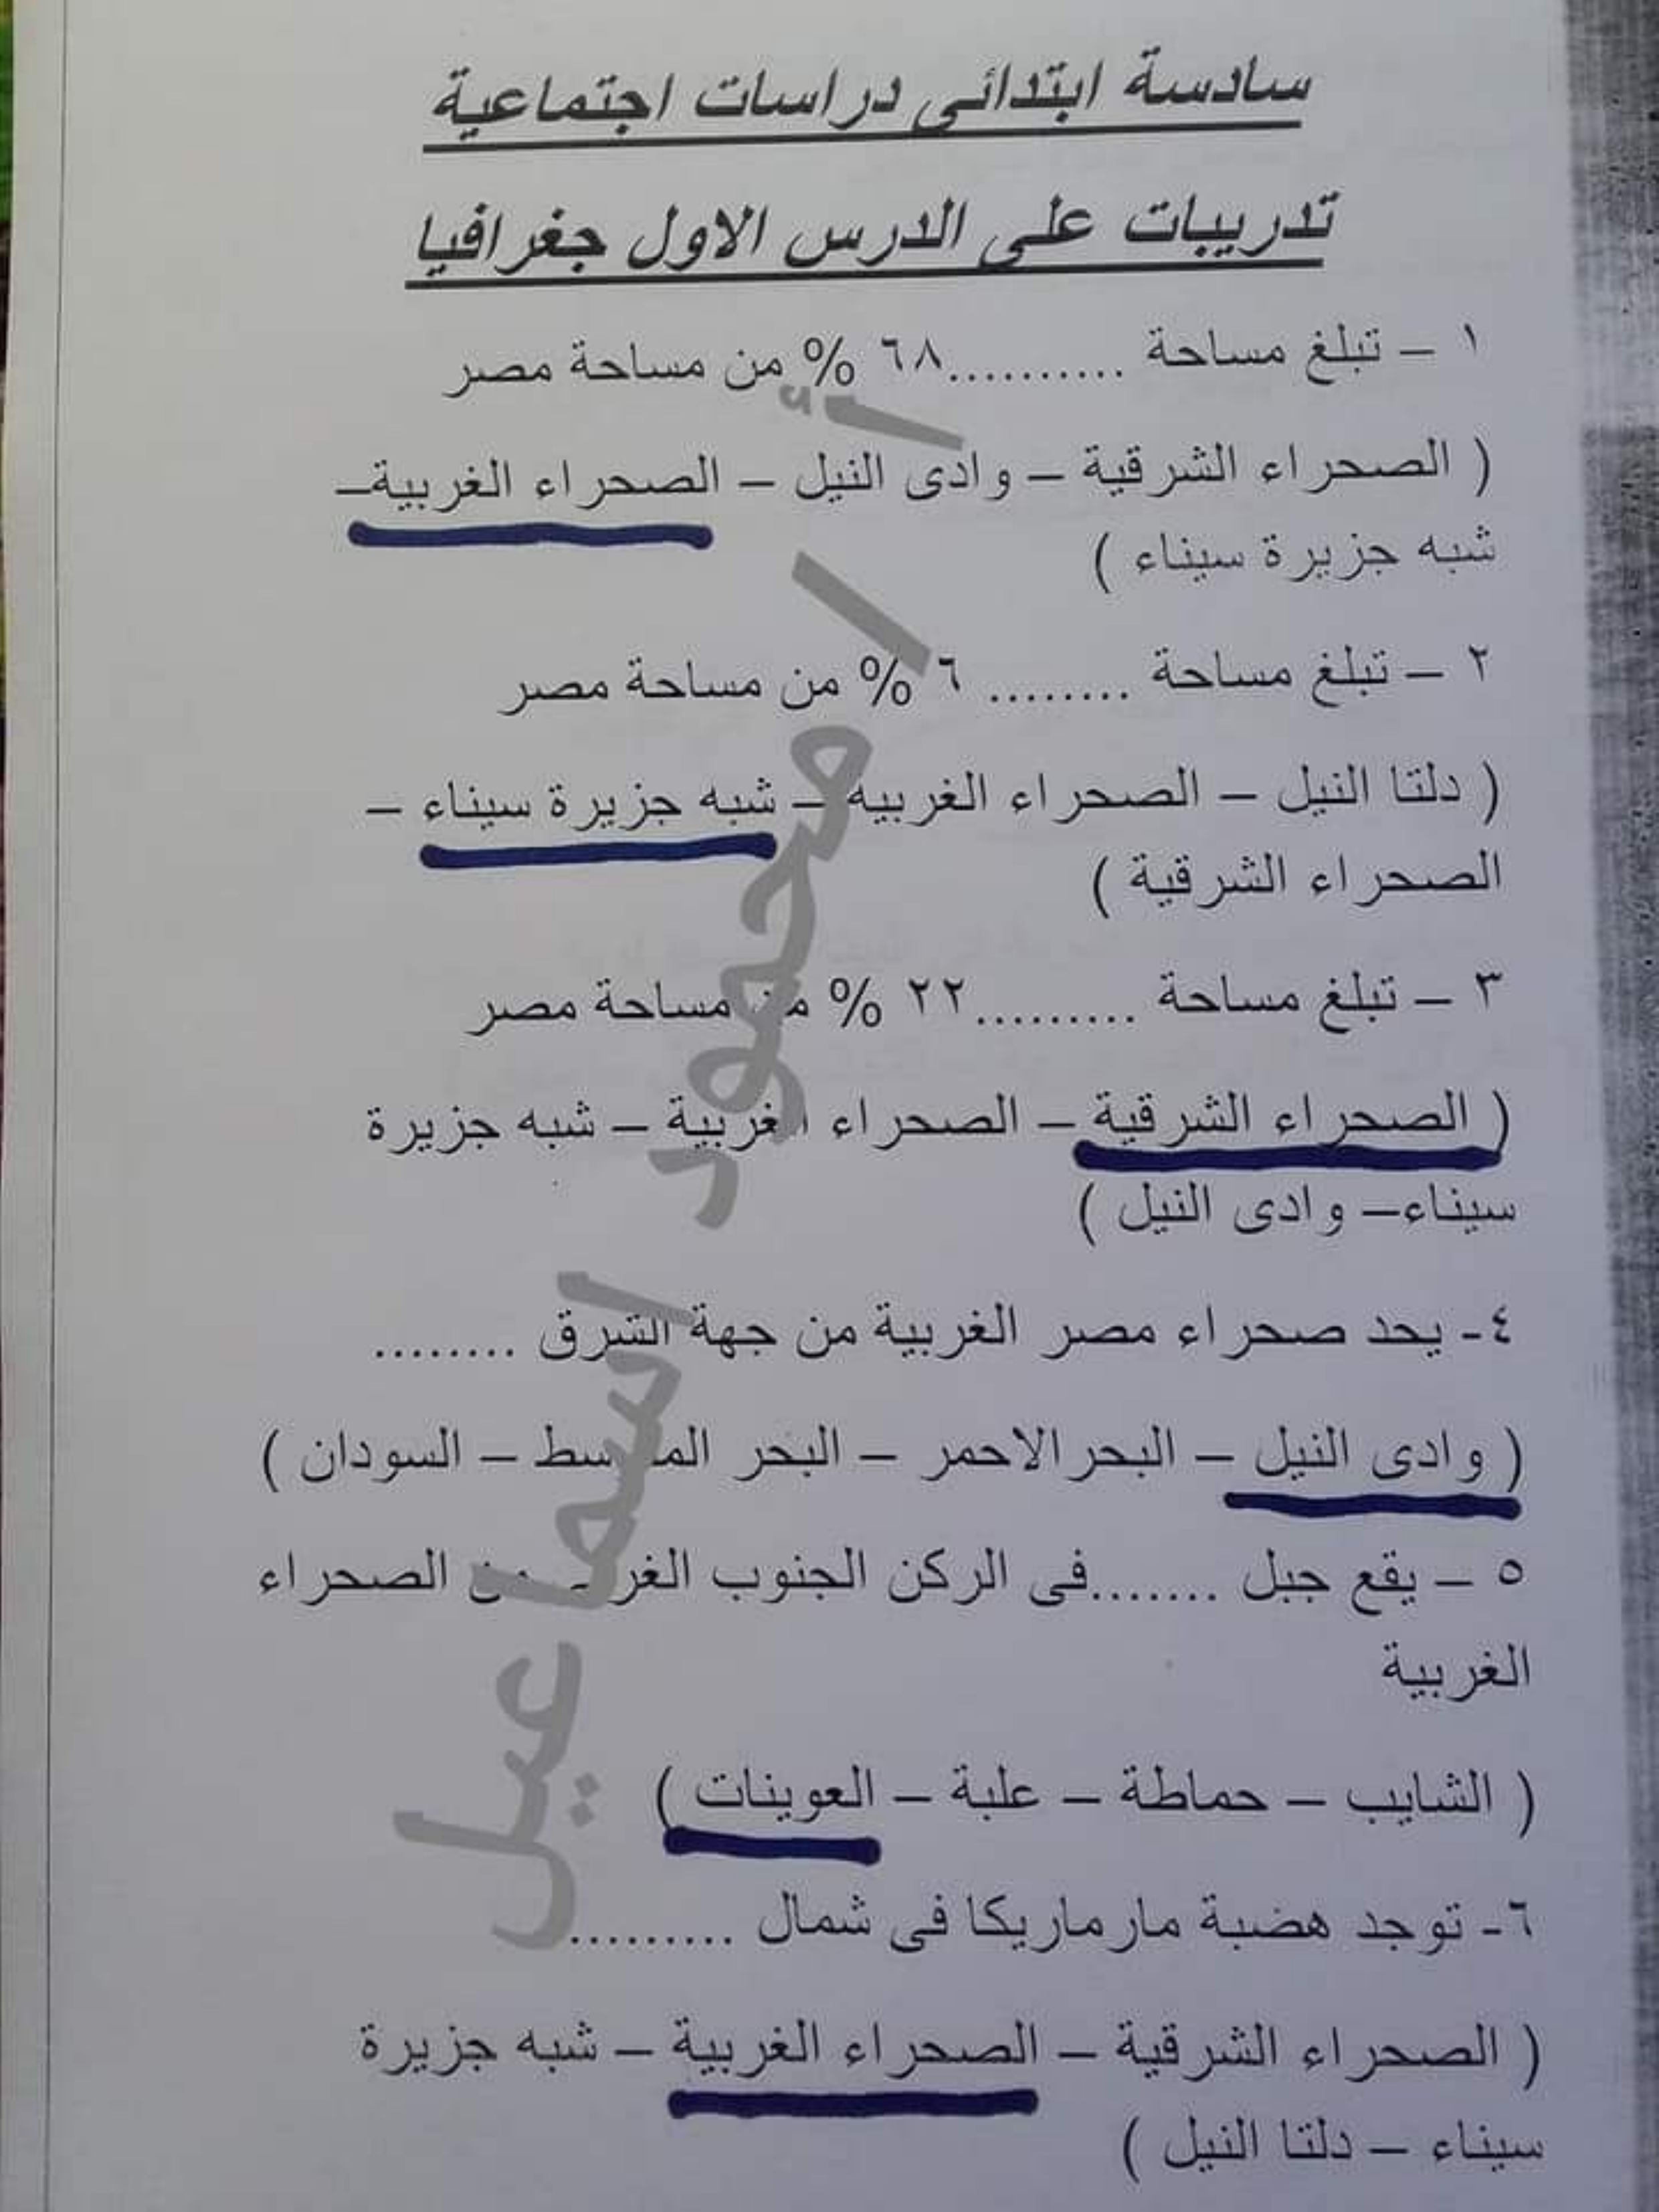 سادسة ابتدائى دراسات اجتماعية
تدريبات على الدرس الاول جغرافيا
١ – تبلغ مساحة ..........٦٨ % من مساحة مصر
( الصحراء الشرقية – وادى النيل – الصحراء الغربية–
شبه جزيرة سيناء )
٢ – تبلغ مساحة ........ ٦ % من مساحة مصر
( دلتا النيل – الصحراء الغربية – شبه جزيرة سيناء –
الصحراء الشرقية )
٣ – تبلغ مساحة ..........٢٢ % من مساحة مصر
( الصحراء الشرقية – الصحراء الغربية – شبه جزيرة
سيناء– وادى النيل )
٤- يحد صحراء مصر الغربية من جهة الشرق ........
( وادى النيل – البحر الاحمر – البحر المتوسط – السودان )
٥ – يقع جبل .......فى الركن الجنوب الغربى من الصحراء
الغربية
( الشايب – حماطة – علبة – العوينات )
٦- توجد هضبة مارماريكا فى شمال .........
( الصحراء الشرقية – الصحراء الغربية – شبه جزيرة
سيناء – دلتا النيل )
أ / محمود اسماعيل